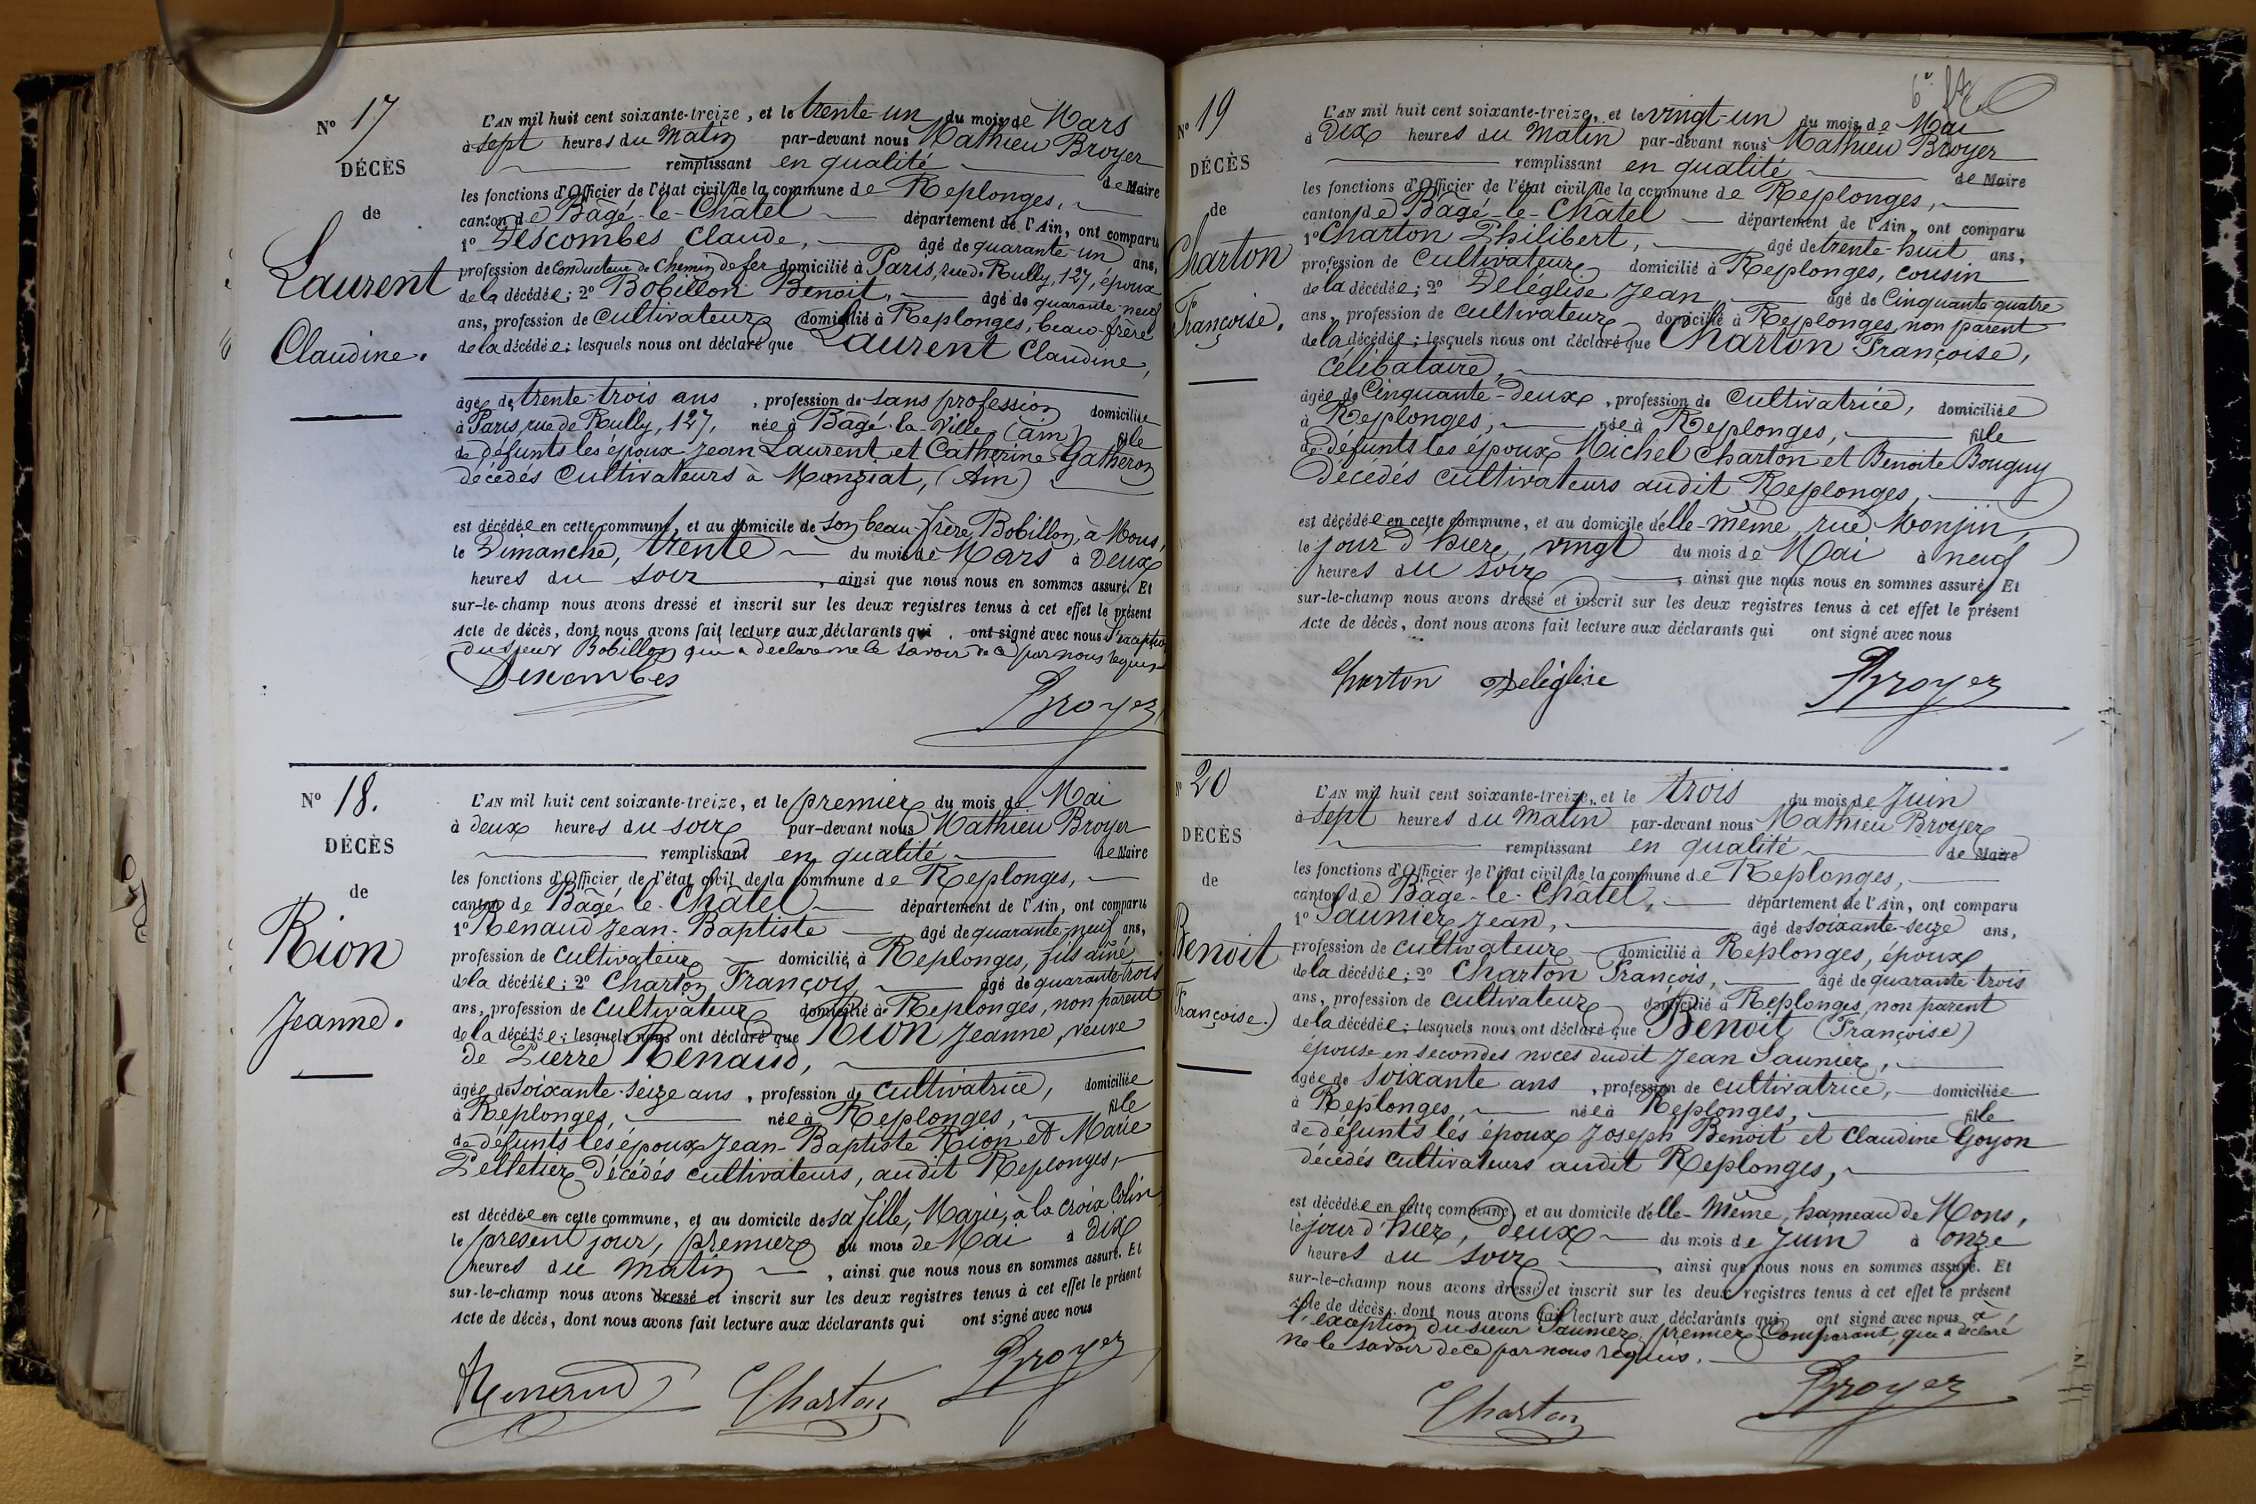 Nº 17
DÉCÈS
de
Laurent
Claudine.
L'AN mil huit cent soixante-treize, et le trente-un du mois de Mars
à sept heures du matin par-devant nous Mathieu Broyer
remplissant en qualité de Maire
les fonctions d'Officier de l'état civil de la commune de Replonges,
canton de Bâgé-le-Châtel département de l'Ain, ont comparu
1º Descombes Claude, âgé de quarante-un ans,
profession de Conducteur de Chemin de fer domicilié à Paris, rue de Rully, 127, époux
de la décédée; 2º Bobillon Benoit, âgé de quarante-neuf
ans, profession de cultivateur domicilié à Replonges, beau-frère
de la décédée; lesquels nous ont déclaré que Laurent Claudine,
âgée de trente-trois ans, profession de sans profession domiciliée
à Paris, rue de Rully, 127, née à Bâgé-la-Ville (Ain) fille
de défunts les époux Jean Laurent et Catherine Gatheron
décédés cultivateurs à Manziat, (Ain)
est décédée en cette commune, et au domicile de son beau-frère Bobillon, à Mons,
le Dimanche, trente du mois de Mars à deux
heures du soir, ainsi que nous nous en sommes assuré. Et
sur-le-champ nous avons dressé et inscrit sur les deux registres tenus à cet effet le présent
Acte de décès, dont nous avons fait lecture aux déclarants qui ont signé avec nous à l'exception
du sieur Bobillon qui a déclaré ne le savoir de ce par nous requis
Descombes
Broyer
Nº 18.
DÉCÈS
de
Rion
Jeanne.
L'AN mil huit cent soixante-treize, et le premier du mois de Mai
à deux heures du soir par-devant nous Mathieu Broyer
remplissant en qualité de Maire
les fonctions d'Officier de l'état civil de la commune de Replonges,
canton de Bâgé-le-Châtel département de l'Ain, ont comparu
1º Renaud Jean-Baptiste âgé de quarante-neuf ans,
profession de cultivateur domicilié à Replonges, fils aîné
de la décédée; 2º Charton François, âgé de quarante-trois
ans, profession de cultivateur domicilié à Replonges, non parent
de la décédée; lesquels nous ont déclaré que Rion Jeanne, veuve
de Pierre Renaud,
âgée de soixante-seize ans, profession de cultivatrice, domiciliée
à Replonges, née à Replonges, fille
de défunts les époux Jean-Baptiste Rion et Marie
Pelletier décédés cultivateurs, audit Replonges,
est décédée en cette commune, et au domicile de sa fille, Marie, à la croix Colin
le présent jour, premier du mois de Mai à dix
heures du matin, ainsi que nous nous en sommes assuré. Et
sur-le-champ nous avons dressé et inscrit sur les deux registres tenus à cet effet le présent
Acte de décès, dont nous avons fait lecture aux déclarants qui ont signé avec nous
Renaud Charton Broyer
6e
Nº 19
DÉCÈS
de
Charton
Françoise.
L'AN mil huit cent soixante-treize, et le vingt-un du mois de Mai
à dix heures du matin par-devant nous Mathieu Broyer
remplissant en qualité de Maire
les fonctions d'Officier de l'état civil de la commune de Replonges,
canton de Bâgé-le-Châtel département de l'Ain, ont comparu
1º Charton Philibert, âgé de trente-huit ans,
profession de cultivateur domicilié à Replonges, cousin
de la décédée; 2º Deléglise Jean, âgé de Cinquante-quatre
ans, profession de cultivateur domicilié à Replonges, non parent
de la décédée; lesquels nous ont déclaré que Charton Françoise,
célibataire,
âgée de Cinquante-deux, profession de cultivatrice, domiciliée
à Replonges, née à Replonges, fille
de défunts les époux Michel Charton et Benoite Bouguy
décédés cultivateurs audit Replonges,
est décédée en cette commune, et au domicile d'elle-même, rue Monjin,
le jour d'hier, vingt du mois de Mai à neuf
heures du soir, ainsi que nous nous en sommes assuré. Et
sur-le-champ nous avons dressé et inscrit sur les deux registres tenus à cet effet le présent
Acte de décès, dont nous avons fait lecture aux déclarants qui ont signé avec nous
Charton Deléglise Broyer
Nº 20
DÉCÈS
de
Benoit
(Françoise.)
L'AN mil huit cent soixante-treize, et le trois du mois de Juin
à sept heures du matin par-devant nous Mathieu Broyer
remplissant en qualité de Maire
les fonctions d'Officier de l'état civil de la commune de Replonges,
canton de Bâgé-le-Châtel, département de l'Ain, ont comparu
1º Saunier Jean, âgé de soixante-seize ans,
profession de cultivateur domicilié à Replonges, époux
de la décédée; 2º Charton François, âgé de quarante-trois
ans, profession de cultivateur domicilié à Replonges, non parent
de la décédée; lesquels nous ont déclaré que Benoit (Françoise)
épouse en secondes noces dudit Jean Saunier,
âgée de soixante ans, profession de cultivatrice, domiciliée
à Replonges, née à Replonges, fille
de défunts les époux Joseph Benoit et Claudine Goyon
décédés cultivateurs audit Replonges,
est décédée en cette commune, et au domicile d'elle-même, hameau de Mons,
le jour d'hier, deux du mois de Juin à onze
heures du soir, ainsi que nous nous en sommes assuré. Et
sur-le-champ nous avons dressé et inscrit sur les deux registres tenus à cet effet le présent
Acte de décès, dont nous avons fait lecture aux déclarants qui ont signé avec nous à
l'exception du sieur Saunier, premier Comparant, qui a déclaré
ne le savoir de ce par nous requis.
Charton Broyer